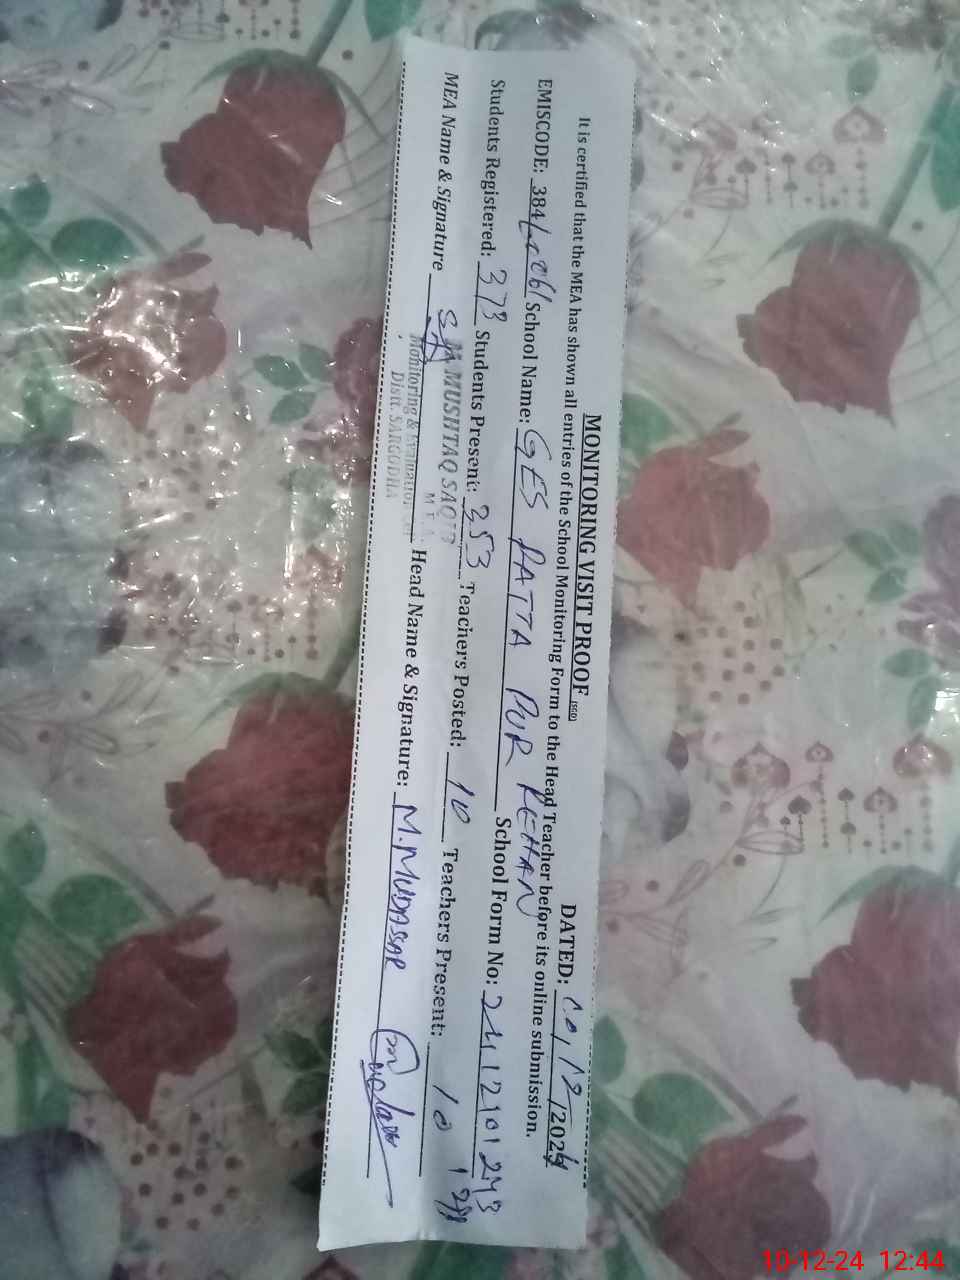 MONITORING VISIT PROOF (SGD)
DATED: 10/12/2024
It is certified that the MEA has shown all entries of the School Monitoring Form to the Head Teacher before its online submission.
EMISCODE: 384 School Name: GES RATTA PUR REHAN School Form No:
Students Registered: 373 Students Present: 353 Teachers Posted: 10 Teachers Present: 10
MEA Name & Signature Head Name & Signature: M. MUDASSAR
MUSHTAQ SAQIB
M.E.A.
Monitoring & Evaluation
Distt. SARGODHA
10-12-24 12:44